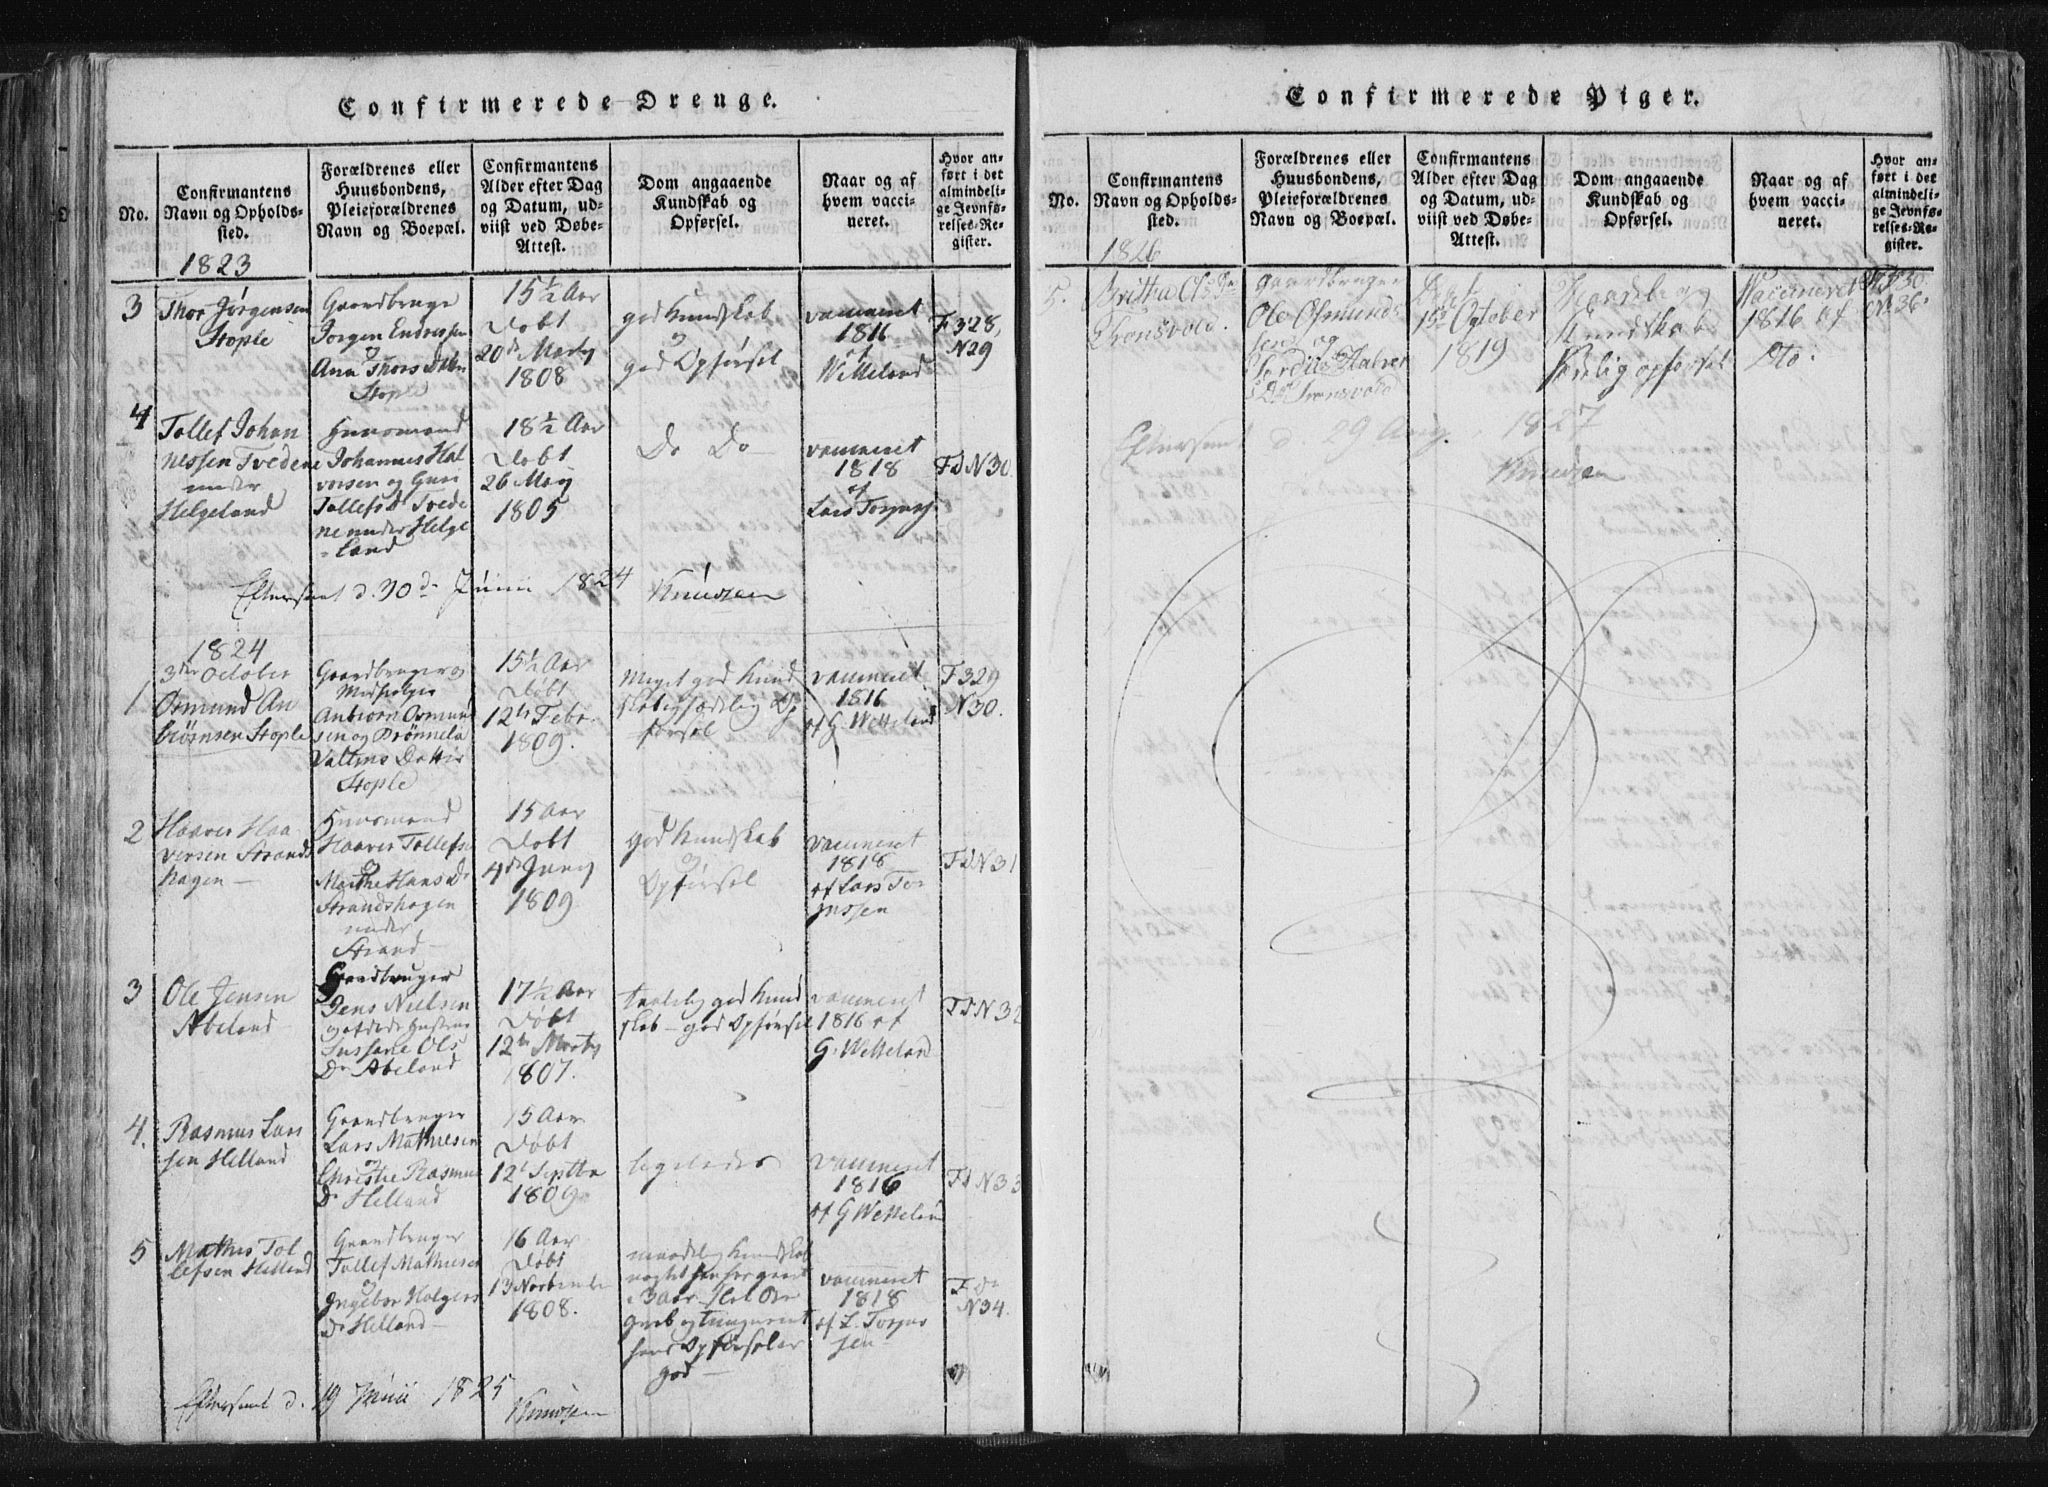 Confirmerede Drenge.
No.
Confirmantens
Navn og Opholds-
sted.
Forældrenes eller
Huusbondens,
Pleieforældrenes
Navn og Boepæl.
Confirmantens
Alder efter Dag
og Datum, ud-
viist ved Døbe-
Attest.
Dom angaaende
Kundskab og
Opførsel.
Naar og af
hvem vacci-
neret.
Hvor an-
ført i det
almindeli-
ge Jevnfø-
relses-Re-
gister.
1823
3
Thor Jørgensen
Stople
Gaardbruger
Jørgen Endresen
og
Ana Thors Dtter
Stople
15½ Aar
Døbt
20d Marty
1808
god Kundskab
og
god Opførsel
vaccineret
1816
af
Wetteland
F 328,
N29
4
Tollef Johan
nessen Tvedene
under
Helgeland
Huusmand
Johannes Hal
vorsen og Guri
Tollefs Dr Tvede
ne under Helge
land
18½ Aar
Døbt
26 May
1805
Do Do
vaccineret
1818
af
Lars Torjus
Fd N30
Efterseet d. 30d Junii 1824 Knudsen
1824
3die October
1
Osmund An
biørnsen Stople
Gaardbruger og
Medhielper
Anbiørn Osmund
sen og Drønnela
Valtins Datter
Stople
15½ Aar
Døbt
12te Febr.
1809.
Meget god Kund
skab og sædelig Op
førsel
vaccineret
1816
af G. Wetteland
F 329
N30.
2
Haaver Haa
versen Strands
hagen
Huusmand
Haaver Tollefs
og
Marthe Hans Dr
Strandshagen
under
Strand
15 Aar
Døbt
4de Juny
1809
god Kundskab
og
Opførsel
vaccineret
1818
af Lars Tor
jussen
Fd N31
3
Ole Jensen
Abeland
Gaardbruger
Jens Nielsen
og afdøde Hustrue
Sussane Ols
Dr Abeland
17½ Aar
Døbt
12te Marty
1807.
taalelig god Kund
skab – god Opførsel
vaccineret
1816 af
G. Wetteland
Fd N32
4.
Rasmus Lars
sen Helland
Gaardbruger
Lars Mathiesen
og
Christie Rasmus
Dr Helland
15 Aar
Døbt
12t Septbr
1809
ligeledes
vaccineret
1816
af G Wetteland
Fd N33
5
Mathis Tol
lefsen Helland
Gaardbruger
Tollef Mathiesen
og
Ingebor Holgers
Dr Helland
16 Aar
Døbt
13 November
1808.
maadelig Kundskab
3 Aar
hans Opførsel er
god
vaccineret
1818
af L. Torjus
sen
F do
N34.
Efterseet d. 19 Junii 1825
Knudsen
Confirmerede Piger.
No.
Confirmantens
Navn og Opholds-
sted.
Forældrenes eller
Huusbondens,
Pleieforældrenes
Navn og Boepæl.
Confirmantens
Alder efter Dag
og Datum, ud-
viist ved Døbe-
Attest.
Dom angaaende
Kundskab og
Opførsel.
Naar og af
hvem vacci-
neret.
Hvor an-
ført i det
almindeli-
ge Jevnfø-
relses-Re-
gister.
1826
5.
Britha Ols Dr
Thonsvold.
Gaardbruger
Ole Osmunds
sen og
Halvor
Døbt
15d October
1819
Kundskab
opførsel
Vaccineret
1816 af
Dto:
No 36
Efterseet d. 29 Aug. 1827
Knudsen